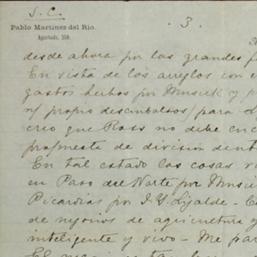 S.C.
3.
Pablo Martinez del Rio.
Apartado, 358.
desde ahora por las grandes
En vista de los arreglos con
gastos hechos por Musick y
n/ propio desembolso/ para
creo que Ross no debe
propuesta de division
En tal estado las cosas
en Paso del Norte por
Picardias por J. Y. Lizalde -
de negocios de agricultura y
inteligente y vivo - Me